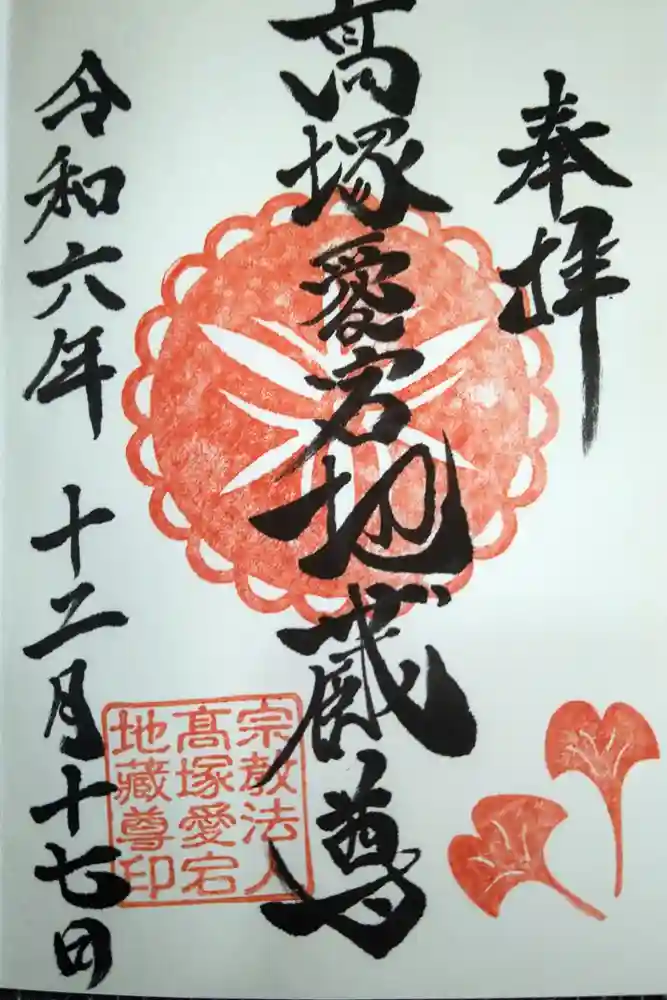 奉拝
高塚愛宕地蔵尊
宗教法人
髙塚愛宕
地蔵尊印
令和六年 十二月十七日